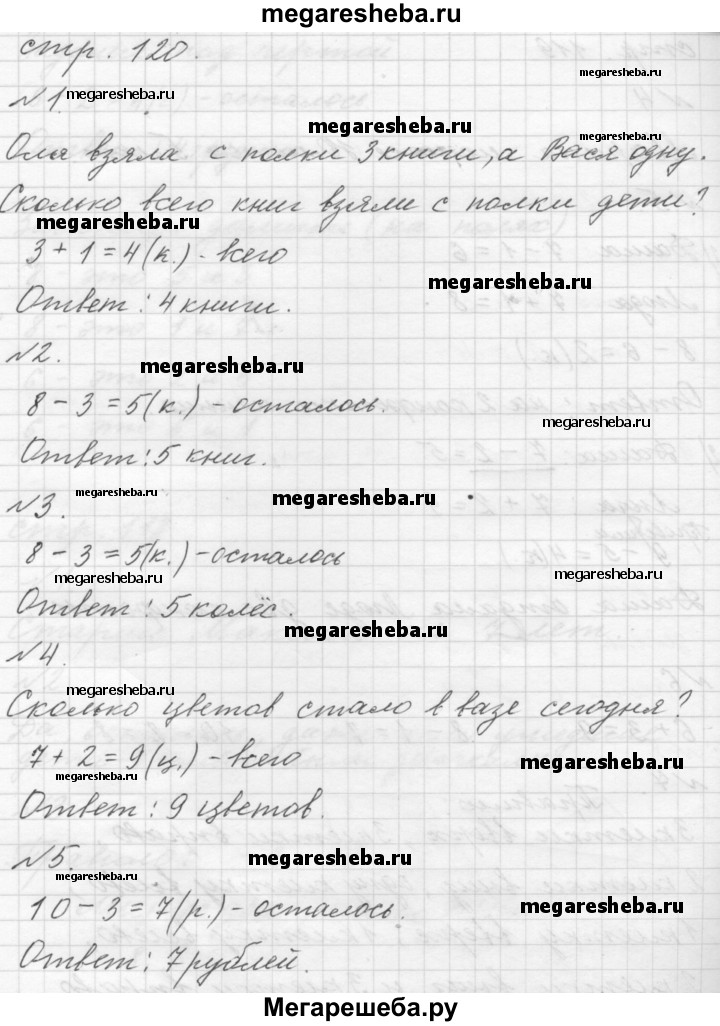 megaresheba.ru
стр. 120.
megaresheba.ru
№1.
megaresheba.ru
megaresheba.ru
megaresheba.ru
Оля взяла с полки 3 книги, а Вася одну.
Сколько всего книг взяли с полки дети?
megaresheba.ru
3 + 1 = 4 (к.) - всего
megaresheba.ru
Ответ: 4 книги.
№2.
megaresheba.ru
8 - 3 = 5 (к.) - осталось.
megaresheba.ru
Ответ: 5 книг.
№3.
megaresheba.ru
megaresheba.ru
8 - 3 = 5 (к.) - осталось
megaresheba.ru
megaresheba.ru
Ответ: 5 колёс.
megaresheba.ru
№4.
megaresheba.ru
Сколько цветов стало в вазе сегодня?
7 + 2 = 9 (ц.) - всего
megaresheba.ru
megaresheba.ru
Ответ: 9 цветов.
№5.
megaresheba.ru
megaresheba.ru
10 - 3 = 7 (р.) - осталось.
megaresheba.ru
Ответ: 7 рублей.
megaresheba.ru
Мегарешеба.ру